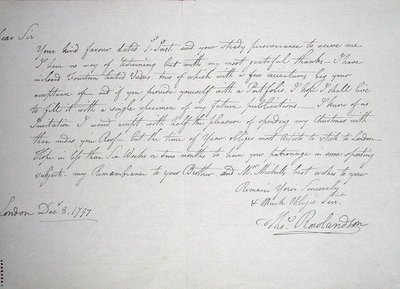 Dear Sir
Your kind favour dated 1st Inst and your steady perseverance to serve me
I have no way of returning but with my most grateful thanks — I have
inclosed Fourteen tinted Views two of which with a few caricatures beg your
acceptance of — and if you provide yourself with a Portfolio I hope I shall live
to fill it with a couple specimen of my future publications — I know of no
Invitation I would accept with half the pleasure of spending my Christmas with
than under your Roof but the time of Year obliges most artists to stick to London
Hope in less than Six Weeks or two months to have your patronage in some sporting
Subjects. my Remembrance to your Brother and Mr. Michells best wishes to you
Remain Yours Sincerely
& Much Oblig'd Serv.
London Decr. 3. 1797
Thos. Rowlandson